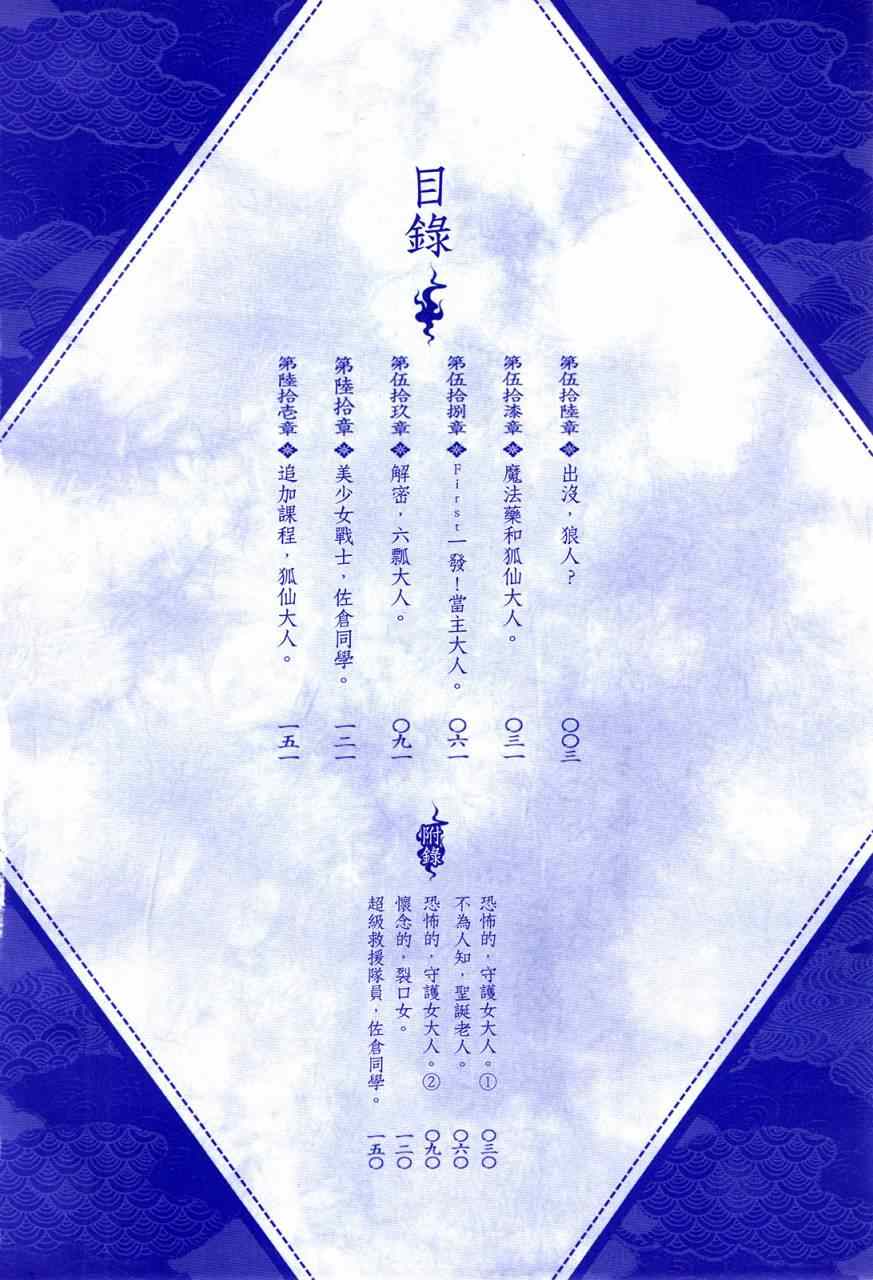 目錄
第伍拾陸章 出沒，狼人？ 〇〇三
第伍拾漆章 魔法藥和狐仙大人。 〇三一
第伍拾捌章 First一發！當主大人。 〇六一
第伍拾玖章 解密，六瓢大人。 〇九一
第陸拾章 美少女戰士，佐倉同學。 一二一
第陸拾壹章 追加課程，狐仙大人。 一五一
附錄
恐怖的，守護女大人。① 〇三〇
不為人知，聖誕老人。 〇六〇
恐怖的，守護女大人。② 〇九〇
懷念的，裂口女。 一二〇
超級救援隊員，佐倉同學。 一五〇